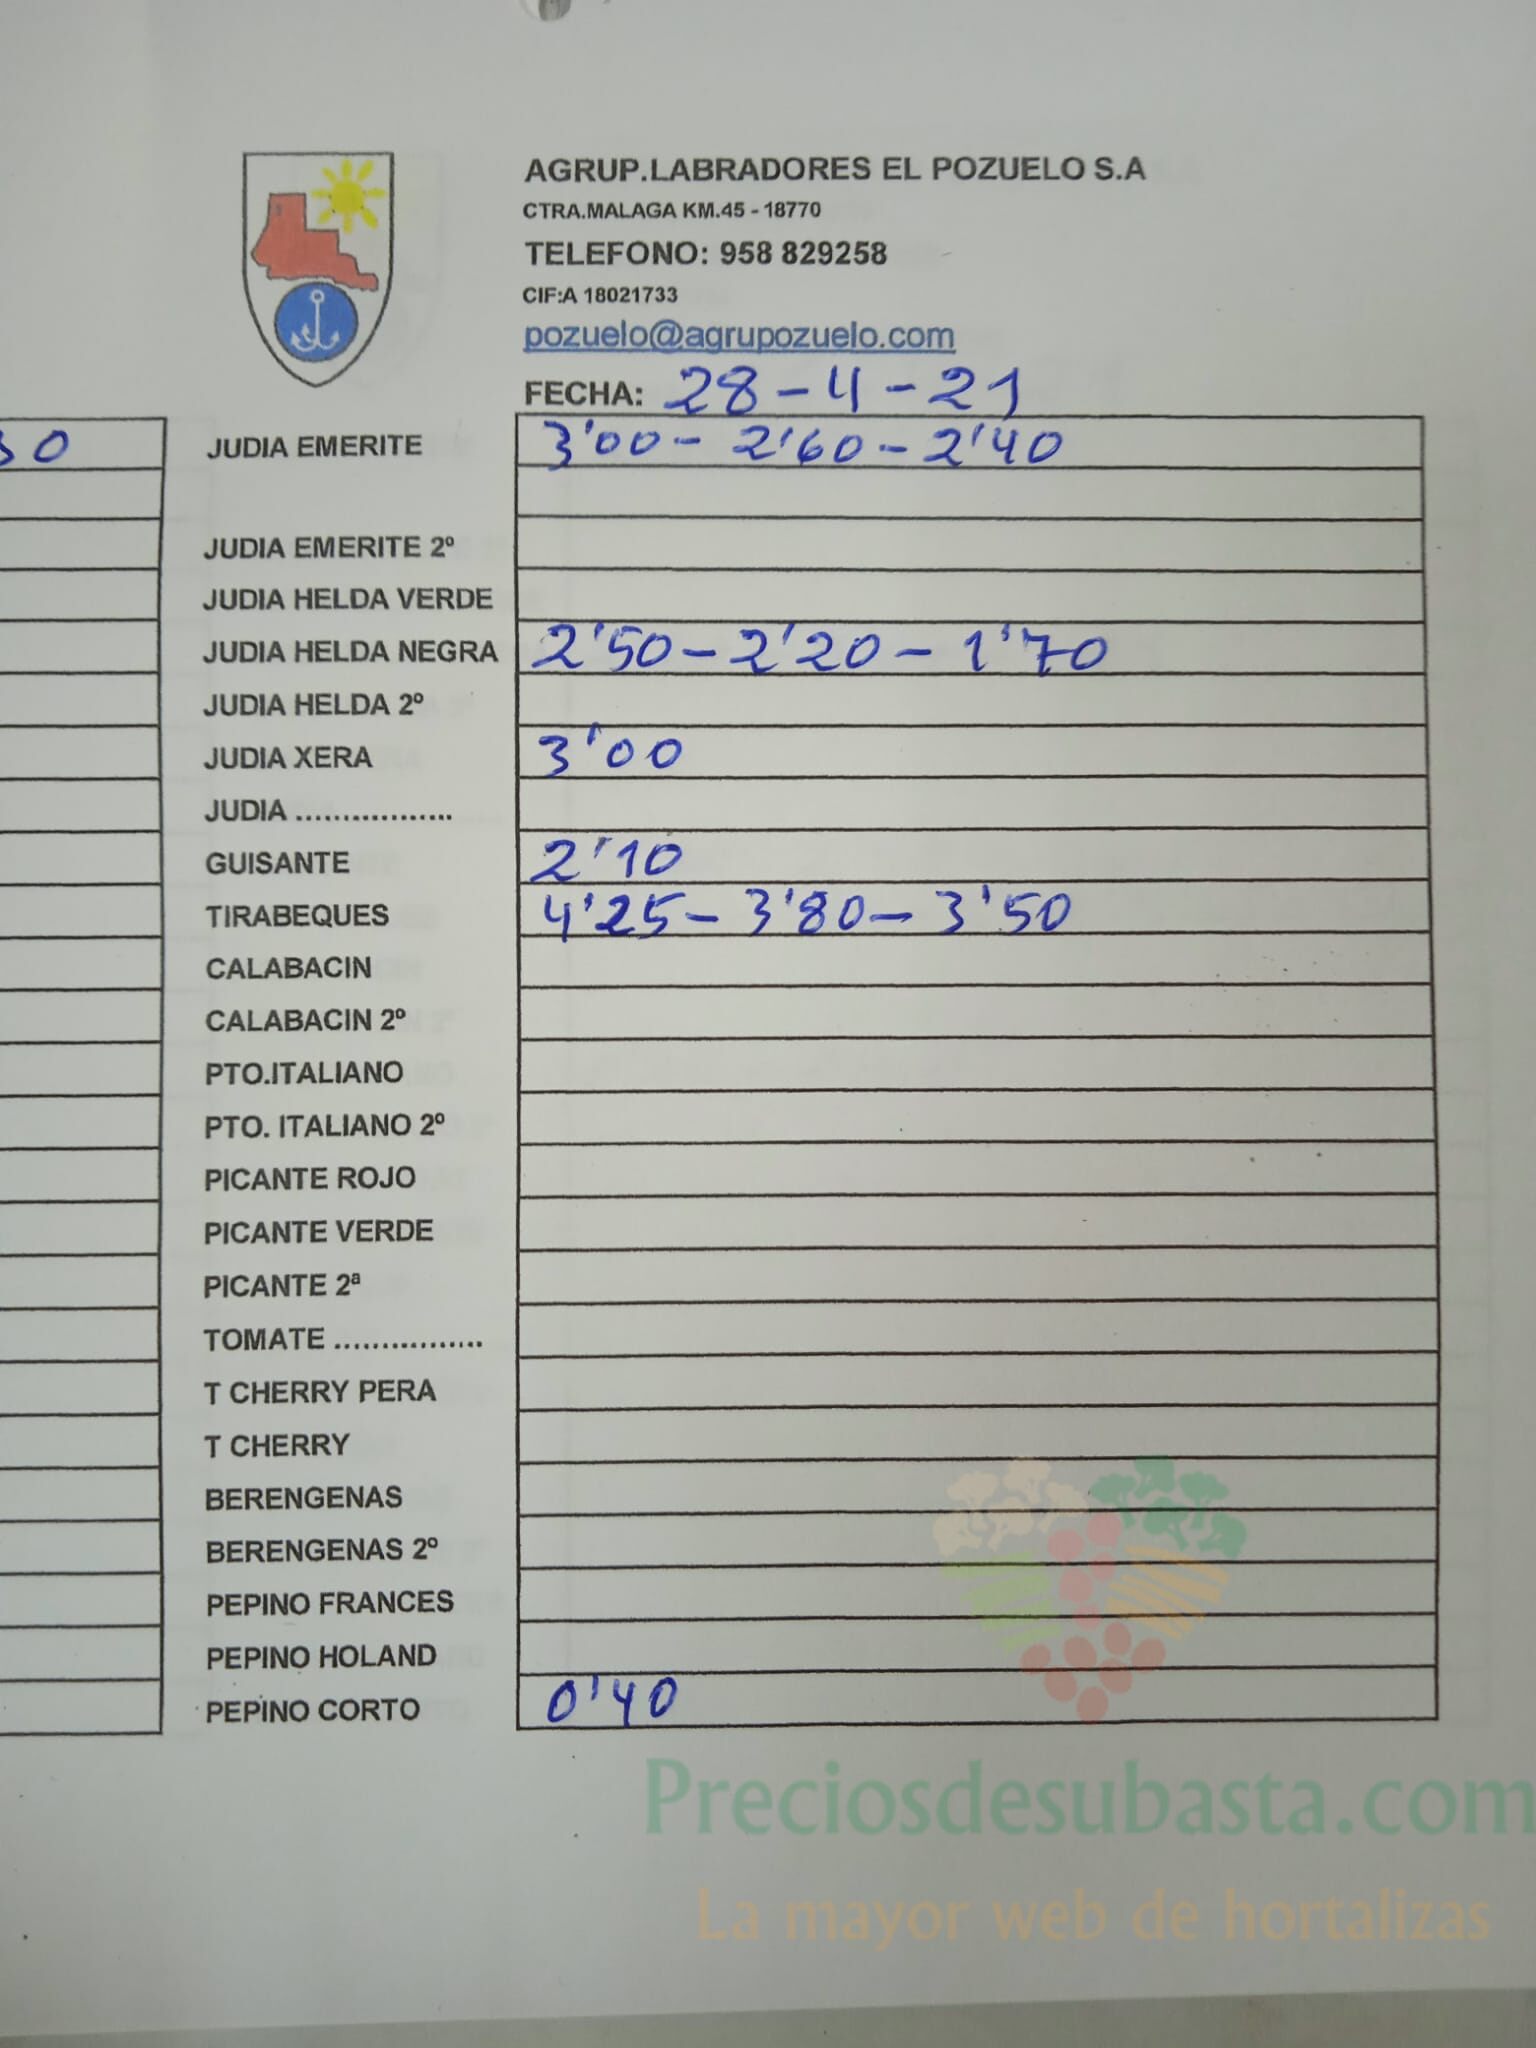 AGRUP.LABRADORES EL POZUELO S.A
CTRA.MALAGA KM.45 - 18770
TELEFONO: 958 829258
CIF:A 18021733
pozuelo@agrupozuelo.com
FECHA: 28-4-21
JUDIA EMERITE 3'00 - 2'60 - 2'40
JUDIA EMERITE 2º
JUDIA HELDA VERDE
JUDIA HELDA NEGRA 2'50 - 2'20 - 1'70
JUDIA HELDA 2º
JUDIA XERA 3'00
JUDIA .................
GUISANTE 2'10
TIRABEQUES 4'25 - 3'80 - 3'50
CALABACIN
CALABACIN 2º
PTO.ITALIANO
PTO. ITALIANO 2º
PICANTE ROJO
PICANTE VERDE
PICANTE 2ª
TOMATE ................
T CHERRY PERA
T CHERRY
BERENGENAS
BERENGENAS 2º
PEPINO FRANCES
PEPINO HOLAND
PEPINO CORTO 0'40
Preciosdesubasta.com
La mayor web de hortalizas